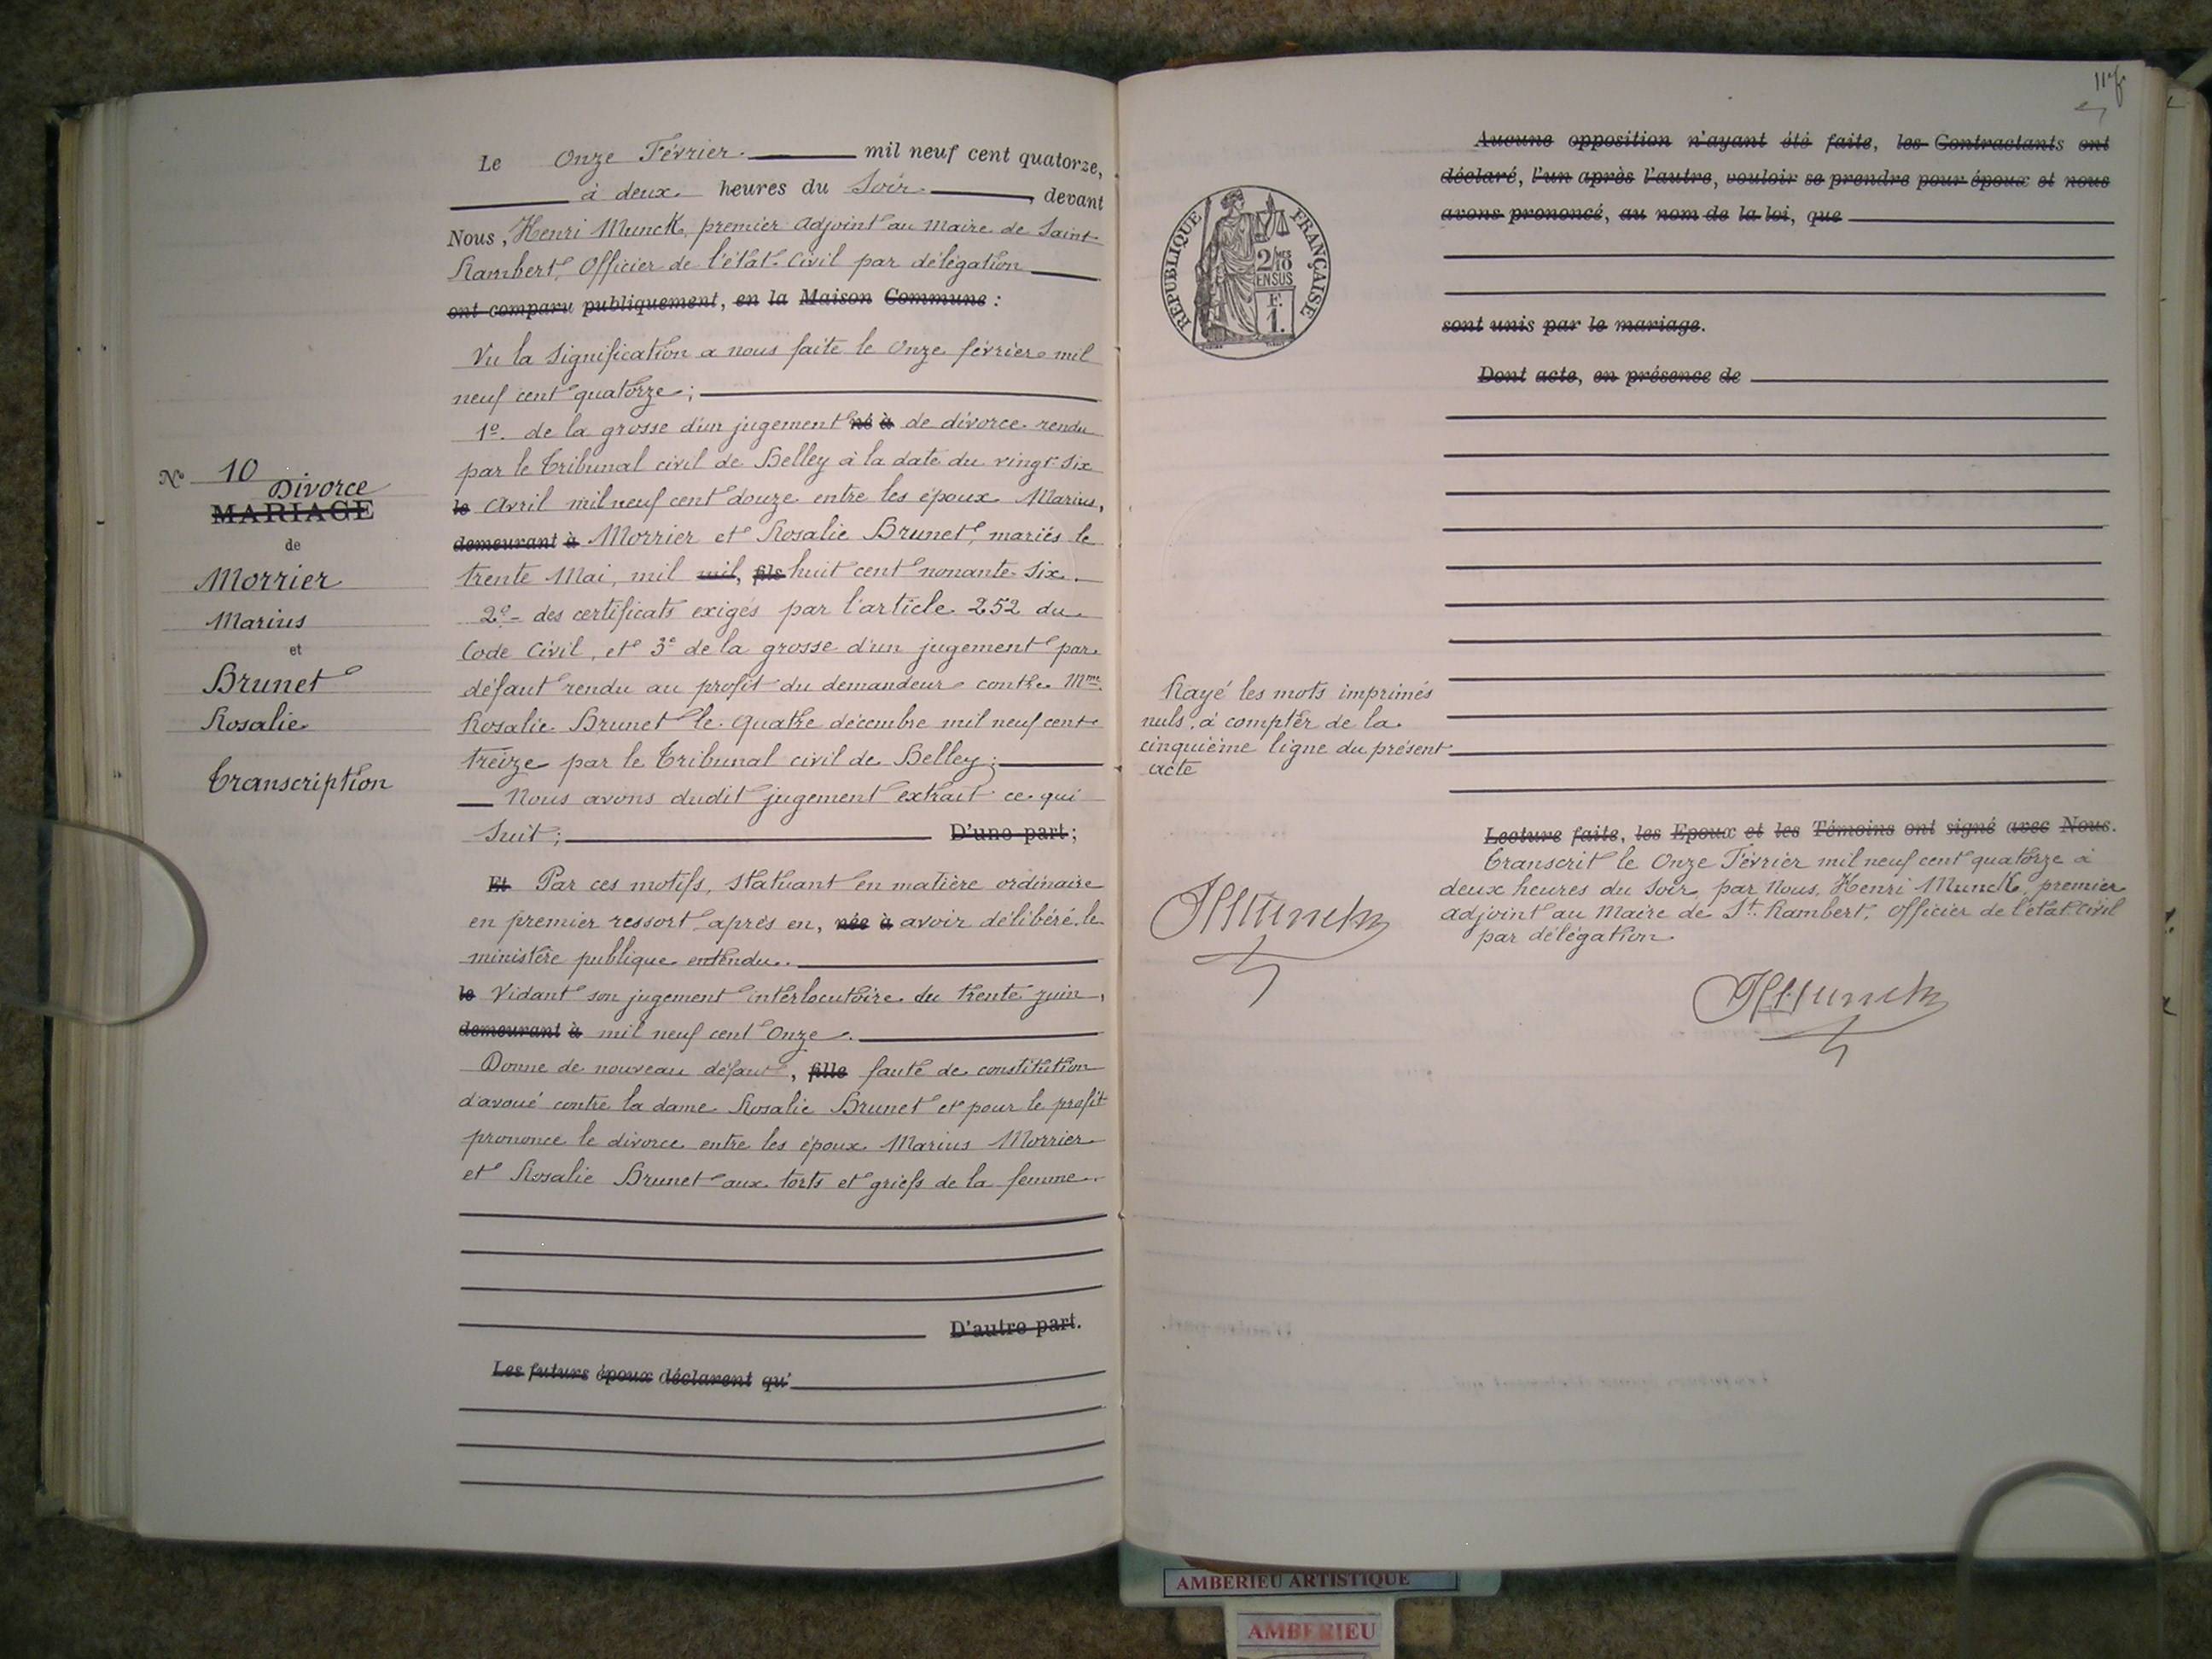 Le Onze Février. mil neuf cent quatorze,
à deux heures du Soir, devant
Nous, Henri Munck, premier Adjoint au Maire de Saint-
Rambert, Officier de l'état-Civil par délégation
ont comparu publiquement, en la Maison Commune :
Vu la Signification a nous faite le Onze février mil
neuf cent quatorze ;
1º. de la grosse d'un jugement né à de divorce rendu
par le Tribunal civil de Belley à la date du vingt-Six
le Avril mil neuf cent douze entre les époux Marius,
demeurant à Morrier et Rosalie Brunet, mariés le
trente Mai, mil mil, fils huit cent nonante-Six.
2º- des certificats exigés par l'article 252 du
Code Civil, et 3º de la grosse d'un jugement par
défaut rendu au profit du demandeur contre Mme
Rosalie Brunet le quatre décembre mil neuf cent
treize par le Tribunal civil de Belley ;
Nous avons dudit jugement extrait ce qui
Suit ; D'une part ;
Et Par ces motifs, Statuant en matière ordinaire
en premier ressort après en, née à avoir délibéré, le
ministère publique entendu.
le Vidant son jugement interlocutoire du trente juin,
demeurant à mil neuf cent Onze.
Donne de nouveau défaut, fille faute de constitution
d'avoué contre la dame Rosalie Brunet et pour le profit
prononce le divorce entre les époux Marius Morrier
et Rosalie Brunet aux torts et griefs de la femme.
D'autre part.
Les futurs époux déclarent qu'
Nº 10
Divorce
MARIAGE
de
Morrier
Marius
et
Brunet
Rosalie
Transcription
RÉPUBLIQUE FRANÇAISE
2/10
EN SUS
F.
1.
Aucune opposition n'ayant été faite, les Contractants ont
déclaré, l'un après l'autre, vouloir se prendre pour époux et nous
avons prononcé, au nom de la loi, que
sont unis par le mariage.
Dont acte, en présence de
Rayé les mots imprimés
nuls, à compter de la
cinquième ligne du présent
acte
HMunck
Lecture faite, les Epoux et les Témoins ont signé avec Nous.
Transcrit le Onze Février mil neuf cent quatorze à
deux heures du Soir, par Nous, Henri Munck, premier
adjoint au Maire de St. Rambert, Officier de l'état-Civil
par délégation
HMunck
AMBERIEU ARTISTIQUE
AMBERIEU